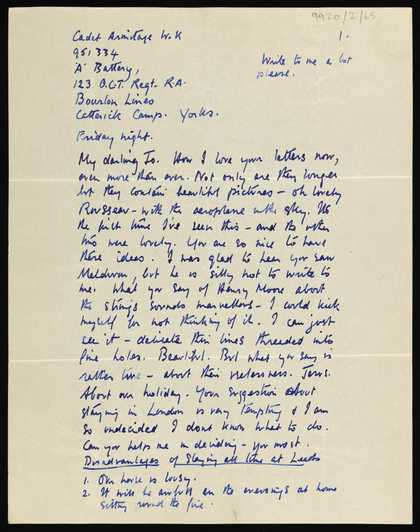 9920/2/65
1.
Cadet Armitage W.K
951334
'A' Battery,
123 O.C.T. Regt. R.A.
Bourlon Lines
Catterick Camp. Yorks.
Write to me a lot
please.
Friday night.
My darling Jo. How I love your letters now,
even more than ever. Not only are they longer
but they contain beautiful pictures - oh lovely
Rousseau - with the aeroplane in the sky. Its
the first time I've seen this - and the other
two were lovely. You are so nice to have
these ideas. I was glad to hear you saw
Meldrum, but he is silly not to write to
me. What you say of Henry Moore about
the strings sounds marvellous - I could kick
myself for not thinking of it. I can just
see it - delicate thin lines threaded into
fine holes. Beautiful. But what you say is
rather true - about their uselessness. Jews.
About our holiday. Your suggestion about
staying in London is very tempting & I am
so undecided I dont know what to do.
Can you help me in deciding - you must.
Disadvantages of Staying all time at Leeds
1. Our house is lousy.
2. It will be awful in the evenings at home
sitting round the fire.